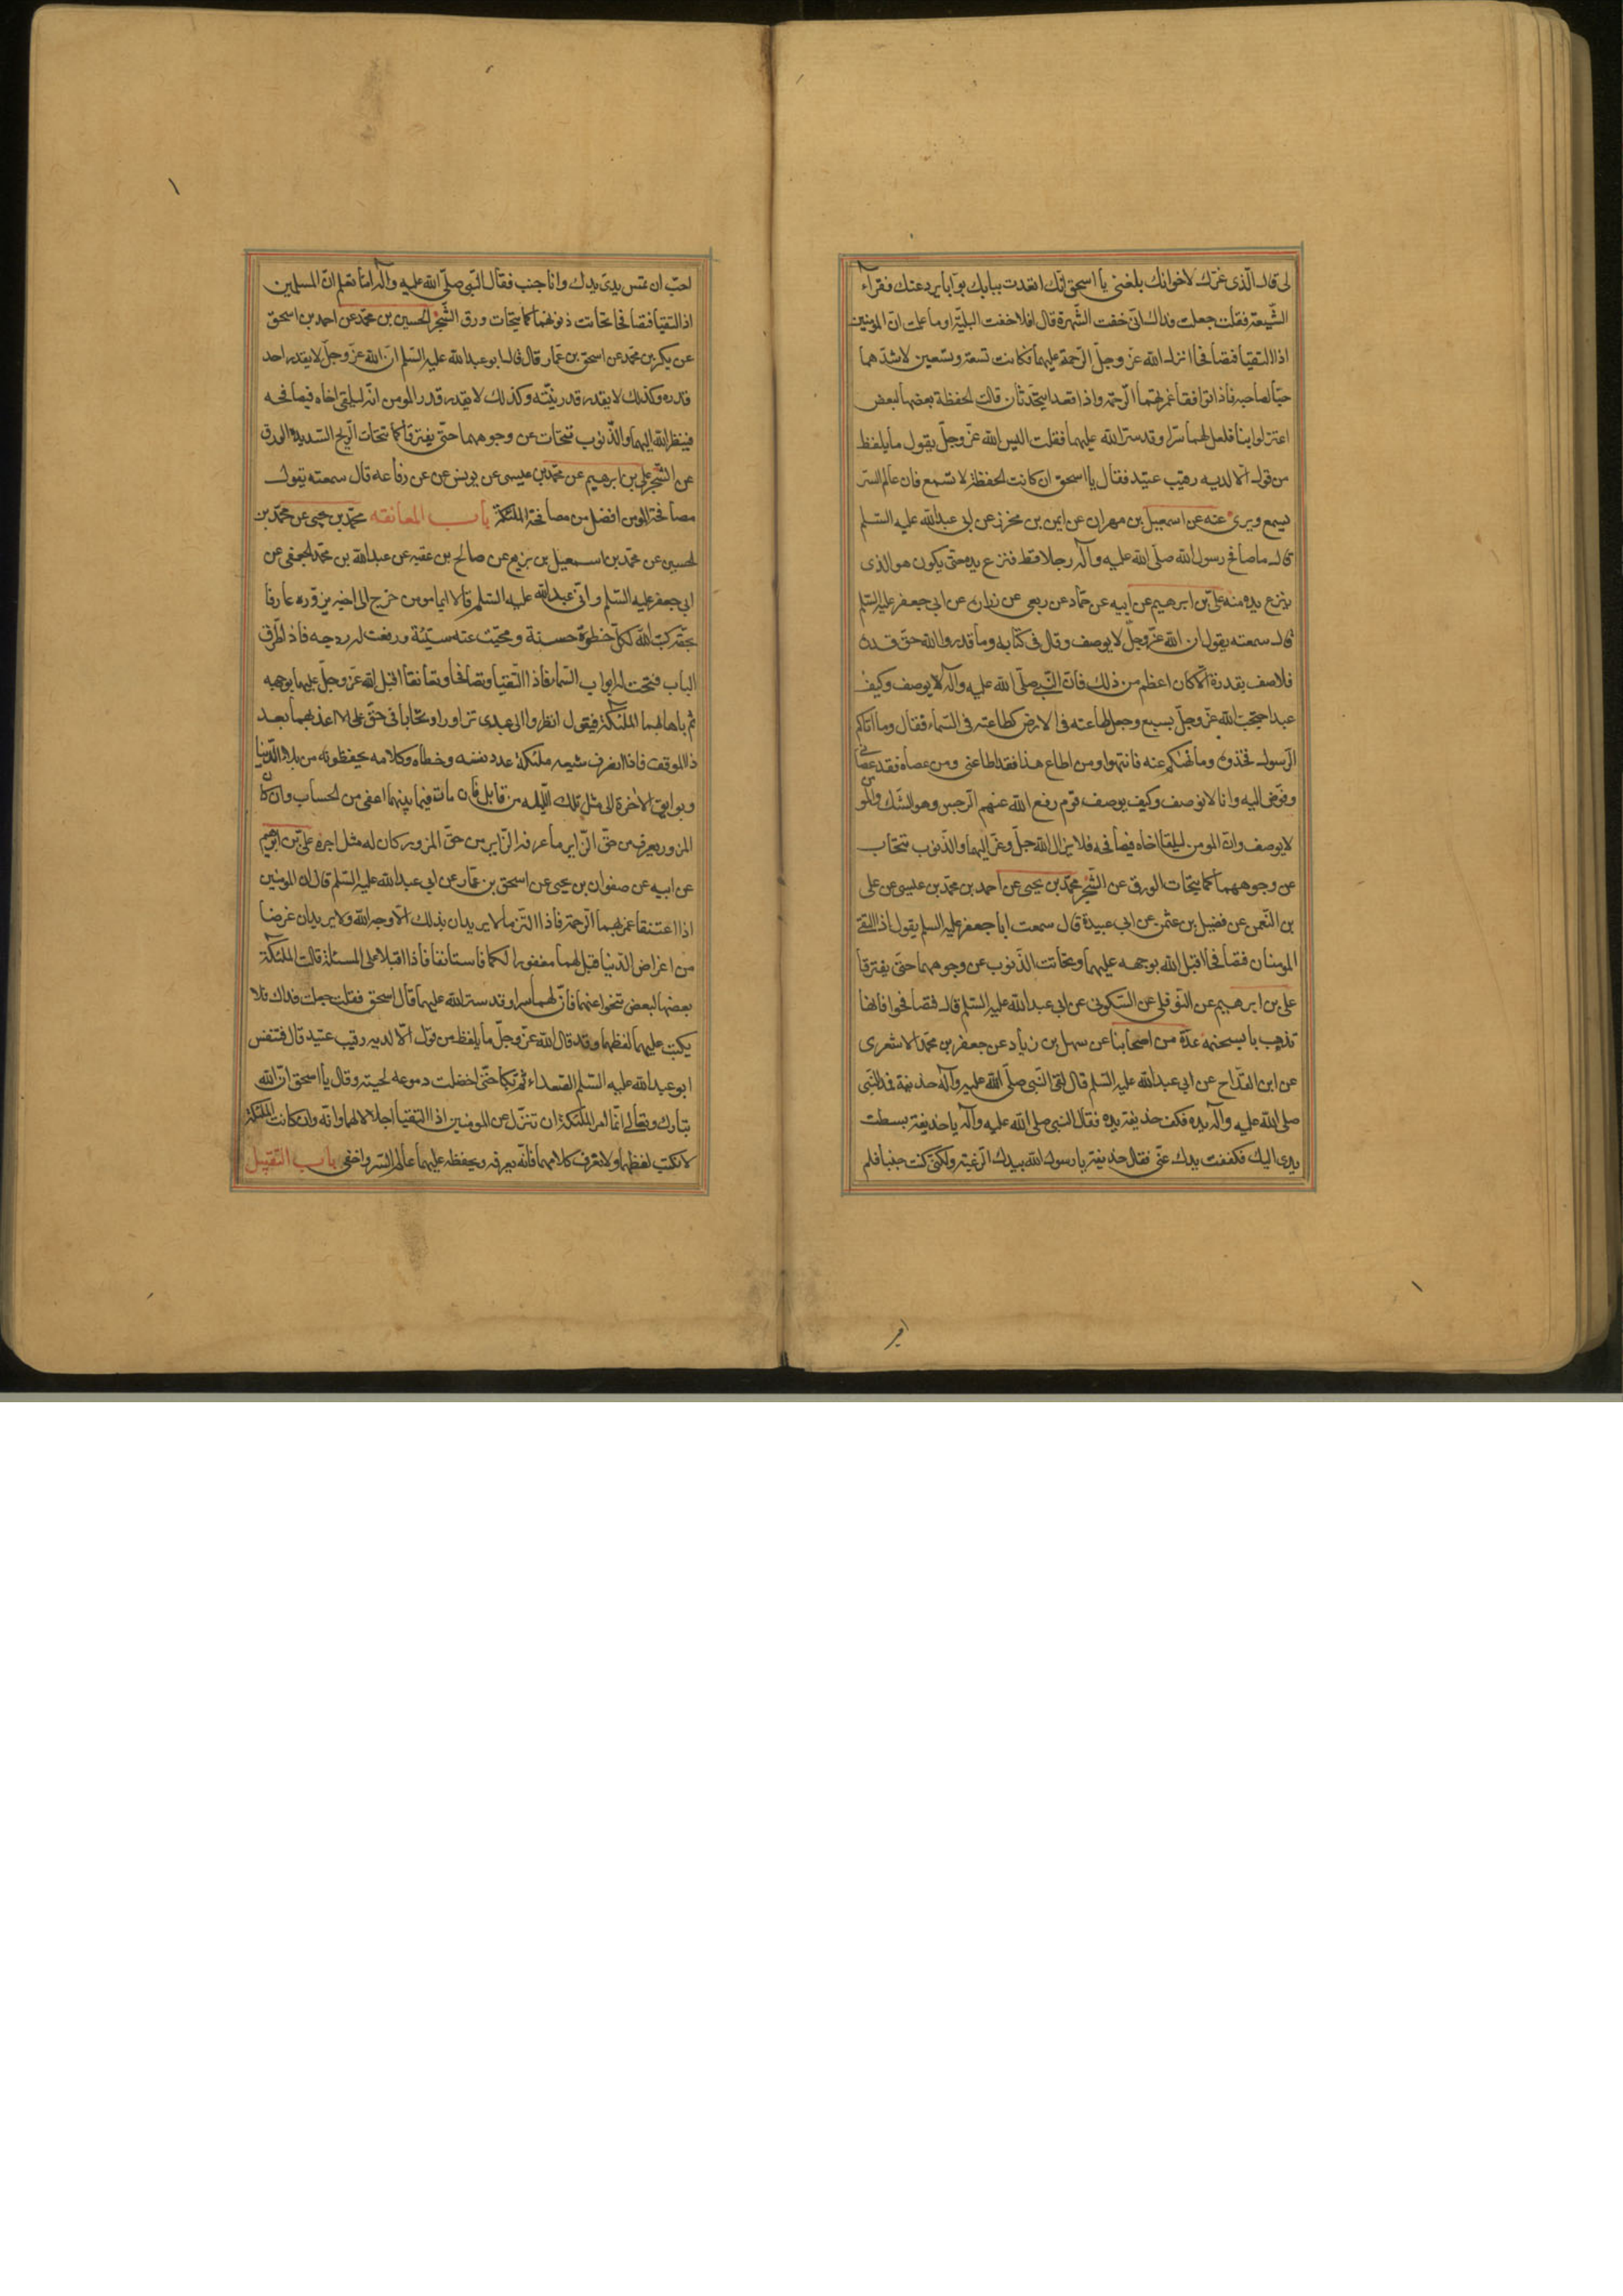 لى قال الّذى غيّرك لاخوانك بلغنى يا اسحق انّك اقعدت ببابك بوّابا يردّ عنك فقراء
الشّيعة فقلت جعلت فداك انّى خفت الشّهرة قال افلا خفت البليّة او ما علمت انّ المؤمنين
اذا التقيا فتصافحا انزل الله عزّ وجلّ الرّحمة عليهما فكانت تسعة وتسعين لاشدّهما
حبّا لصاحبه فاذا توافقا غمرتهما الرّحمة واذا قعدا يتحدّثان قالت الحفظة بعضها لبعض
اعتزلوا بنا فلعل لهما سرّا وقد ستر الله عليهما فقلت اليس الله عزّ وجلّ يقول ما يلفظ
من قول الّا لديه رقيب عتيد فقال يا اسحق ان كانت الحفظة لا تسمع فان عالم السّر
يسمع ويرى عنه عن اسمعيل بن مهران عن ايمن بن محرز عن ابى عبد الله عليه السّلم
قال ما صافح رسول الله صلّى الله عليه وآله رجلا قط فنزع يده حتى يكون هو الذى
ينزع يده منه علىّ بن ابرهيم عن ابيه عن حمّاد عن ربعى عن زرارة عن ابى جعفر عليه السّلم
قال سمعته يقول ان الله عزّ وجلّ لا يوصف وقال فى كتابه وما قدروا الله حقّ قدره
فلا صف بقدرة الّا كان اعظم من ذلك فانّ النّبى صلّى الله عليه وآله لا يوصف وكيف
عبد احتجب الله عزّ وجلّ بسبع وجعل طاعته فى الارض كطاعته فى السّماء فقال وما آتاكم
الرّسول فخذوه وما نهيكم عنه فانتهوا ومن اطاع هذا فقد اطاعنى ومن عصاه فقد عصانى
وفوّض اليه وانا لا نوصف وكيف يوصف قوم رفع الله عنهم الرّجس وهو الشّك والمومن
لا يوصف وانّ المومن ليلقا اخاه فيصافحه فلا يزال الله جلّ وعزّ اليهما والذّنوب تتحّات
عن وجوههما كما يتحات الورق عن الشّجر محمّد بن يحيى عن احمد بن محمّد بن عيسى عن على
بن النّعمن عن فضيل بن عثمن عن ابى عبيدة قال سمعت ابا جعفر عليه السلم يقول اذا التقى
المومنان فتصافحا اقبل الله بوجهه عليهما وتحاتت الذّنوب عن وجوههما حتّى يفترقا
على بن ابرهيم عن النّوفلى عن السّكونى عن ابى عبد الله عليه السّلم قال تصافحوا فانها
تذهب بالسخيمة عدّة من اصحابنا عن سهل بن زياد عن جعفر بن محمّد الاشعرى
عن ابن القدّاح عن ابى عبد الله عليه السّلم قال لقى النّبى صلّى الله عليه وآله حذيفة فمد النّبى
صلى الله عليه وآله يده فكف حذيفة يده فقال النبى صلى الله عليه وآله يا حذيفة بسطت
يدى اليك فكففت يدك عنّى فقال حذيفة يا رسول الله بيدك الرّغبة ولكنّى كنت جنبا فلم
احبّ ان تمسّ يدى يدك وانا جنب فقال النّبى صلّى الله عليه وآله اما تعلم انّ المسلمين
اذا التقيا فتصافحا تحاتت ذنوبهما كما يتحات ورق الشّجر الحسين بن محمّد عن احمد بن اسحق
عن بكر بن محمّد عن اسحق بن عمّار قال قال ابو عبد الله عليه السّلم انّ الله عزّ وجلّ لا يقدر احد
قدره وكذلك لا يقدر قدر نبيّه وكذلك لا يقدر قدر المومن انّه ليلقى اخاه فيصافحه
فينظر الله اليهما والذّنوب تتحات عن وجوههما حتّى يفترقا كما تتحات الرّيح الشّديدة الورق
عن الشّجر على بن ابرهيم عن محمّد بن عيسى عن يونس عن رفاعه قال سمعته يقول
مصافحة المومن افضل من مصافحة الملئكة باب المعانقه محمّد بن يحيى عن محمّد بن
الحسين عن محمّد بن اسمعيل بن بزيع عن صالح بن عقبه عن عبد الله بن محمّد الجعفى عن
ابى جعفر عليه السّلم وابى عبد الله عليه السّلم قالا ايما مومن خرج الى اخيه يزوره عارفا
بحقّه كتب الله لكلّ خطوة حسنة ومحيت عنه سيّئة ورفعت له درجه فاذا طرق
الباب فتحت له ابواب السّماء فاذا التّقيا وتصافحا وتعانقا اقبل الله عزّ وجلّ عليهما بوجهه
ثم باها بهما الملئكة فيقول انظروا الى عبدى تزاورا وتحابا فى حقّ على الا اعذبهما بعد
ذا الموقف فاذا انصرف شيعه ملئكة عدد نفسه وخطاه وكلامه يحفظونه من بلاء الدّنيا
وبوايق الاخرة الى مثل تلك اللّيله من قابل فان مات فيما بينهما اعفى من الحساب وان كان
المزور يعرف من حقّ الزّاير ما عرفه الزّاير من حقّ المزور كان له مثل اجره علىّ بن ابرهيم
عن ابيه عن صفوان بن يحيى عن اسحق بن عمّار عن ابى عبد الله عليه السّلم قال ان المومنين
اذا اعتنقا غمرتهما الرّحمة فاذا التزما لا يريدان بذلك الّا وجه الله ولا يريدان غرضا
من اغراض الدّنيا قيل لهما مغفورا لكما فاستانفا فاذا اقبلا على المسئلة قالت الملئكة
بعضها لبعض تنحّوا عنهما فانّ لهما سرا وقد ستر الله عليهما قال اسحق فقلت جعلت فداك فلا
يكتب عليهما لفظهما وقد قال الله عزّ وجلّ ما يلفظ من قول الّا لديه رقيب عتيد قال فتنفس
ابو عبد الله عليه السّلم الصّعداء ثم بكا حتّى اخضلت دموعه لحيته وقال يا اسحق ان الله
تبارك وتعالى انّما امر الملئكة ان تعتزل عن المومنين اذا التقيا اجلالا لهما وانّه وان كانت الملئكة
لا تكتب لفظهما ولا تعرف كلامهما فانّه يعرفه ويحفظه عليهما عالم السّر واخفى باب التّقبيل